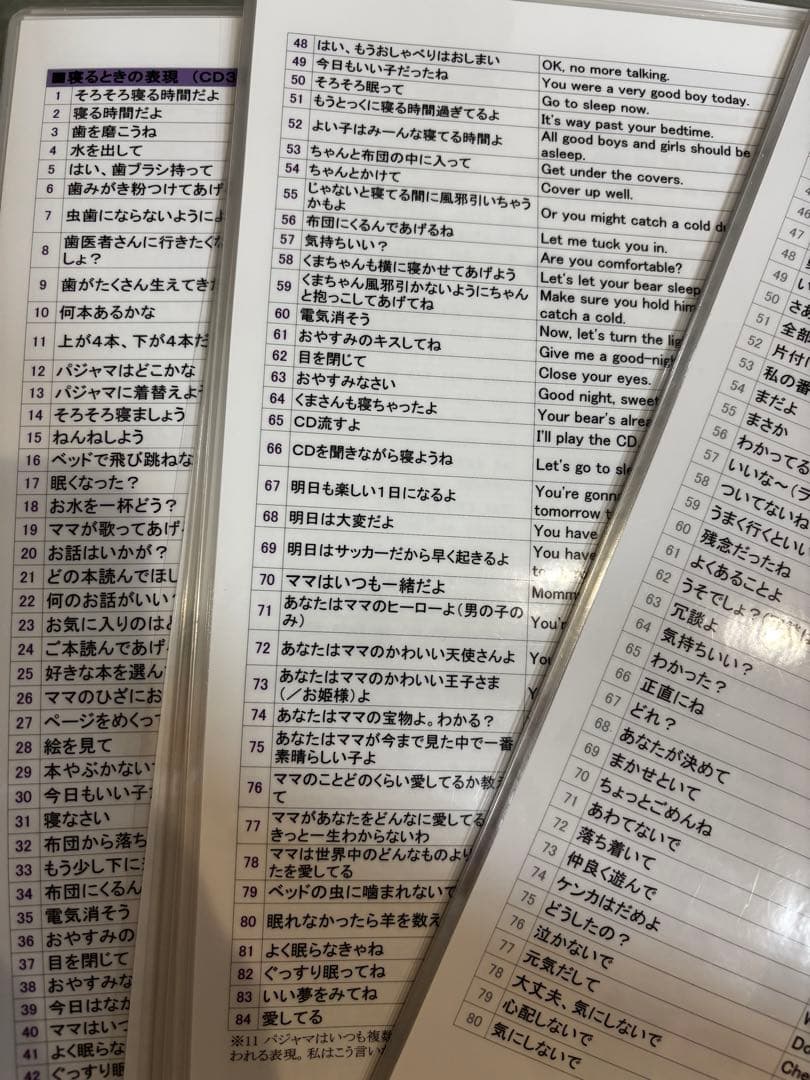 ■寝るときの表現 (CD3
1 そろそろ寝る時間だよ
2 寝る時間だよ
3 歯を磨こうね
4 水を出して
5 はい、歯ブラシ持って
6 歯みがき粉つけてあげ
7 虫歯にならないように
8 歯医者さんに行きたくな
しょ?
9 歯がたくさん生えてき
10 何本あるかな
11 上が4本、下が4本だ
12 パジャマはどこかな
13 パジャマに着替えよ
14 そろそろ寝ましょう
15 ねんねしよう
16 ベッドで飛び跳ねな
17 眠くなった?
18 お水を一杯どう?
19 ママが歌ってあげ
20 お話はいかが?
21 どの本読んでほし
22 何のお話がいい
23 お気に入りのは
24 ご本読んであげ
25 好きな本を選ん
26 ママのひざにお
27 ページをめくって
28 絵を見て
29 本やぶかない
30 今日もいい子
31 寝なさい
32 布団から落ち
33 もう少し下に
34 布団にくるん
35 電気消そう
36 おやすみの
37 目を閉じて
38 おやすみな
39 今日はなか
40 ママはいつ
41 よく眠らな
42 ぐっすり眠
48 はい、もうおしゃべりはおしまい OK, no more talking.
49 今日もいい子だったね You were a very good boy today.
50 そろそろ眠って Go to sleep now.
51 もうとっくに寝る時間過ぎてるよ It's way past your bedtime.
52 よい子はみーんな寝てる時間よ All good boys and girls should be
asleep.
53 ちゃんと布団の中に入って Get under the covers.
54 ちゃんとかけて Cover up well.
55 じゃないと寝てる間に風邪引いちゃう
かもよ Or you might catch a cold
56 布団にくるんであげるね Let me tuck you in.
57 気持ちいい? Are you comfortable?
58 くまちゃんも横に寝かせてあげよう Let's let your bear sleep
59 くまちゃん風邪引かないようにちゃん Make sure you hold him
と抱っこしてあげてね catch a cold.
60 電気消そう Now, let's turn the
61 おやすみのキスしてね Give me a good-nigh
62 目を閉じて Close your eyes.
63 おやすみなさい Good night, sweet
64 くまさんも寝ちゃったよ Your bear's alrea
65 CD流すよ I'll play the CD
66 CDを聞きながら寝ようね Let's go to sle
67 明日も楽しい1日になるよ You're gonn
tomorrow
68 明日は大変だよ You have
69 明日はサッカーだから早く起きるよ You have
70 ママはいつも一緒だよ Momm
71 あなたはママのヒーローよ(男の子の
み) You'r
72 あなたはママのかわいい天使さんよ
73 あなたはママのかわいい王子さま
(/お姫様)よ
74 あなたはママの宝物よ。わかる?
75 あなたはママが今まで見た中で一番
素晴らしい子よ
76 ママのことどのくらい愛してるか教え
て
77 ママがあなたをどんなに愛してる
きっと一生わからないわ
78 ママは世界中のどんなものより
たを愛してる
79 ベッドの虫に噛まれないで
80 眠れなかったら羊を数え
81 よく眠らなきゃね
82 ぐっすり眠ってね
83 いい夢をみてね
84 愛してる
※11 パジャマはいつも複数
われる表現。私はこう言い
46
47
48
49 い
50 さあ
51 全部
52 片付け
53 私の番
54 まだよ
55 まさか
56 わかってる
57 いいな~(
58 ついてないね
59 うまく行くといい
60 残念だったね
61 よくあることよ
62 うそでしょ?
63 冗談よ
64 気持ちいい?
65 わかった?
66 正直にね
67 どれ?
68 あなたが決めて
69 まかせといて
70 ちょっとごめんね
71 あわてないで
72 落ち着いて
73 仲良く遊んで
74 ケンカはだめよ
75 どうしたの?
76 泣かないで
77 元気だして
78 大丈夫、気にしないで
79 心配しないで Do
80 気にしないで Che